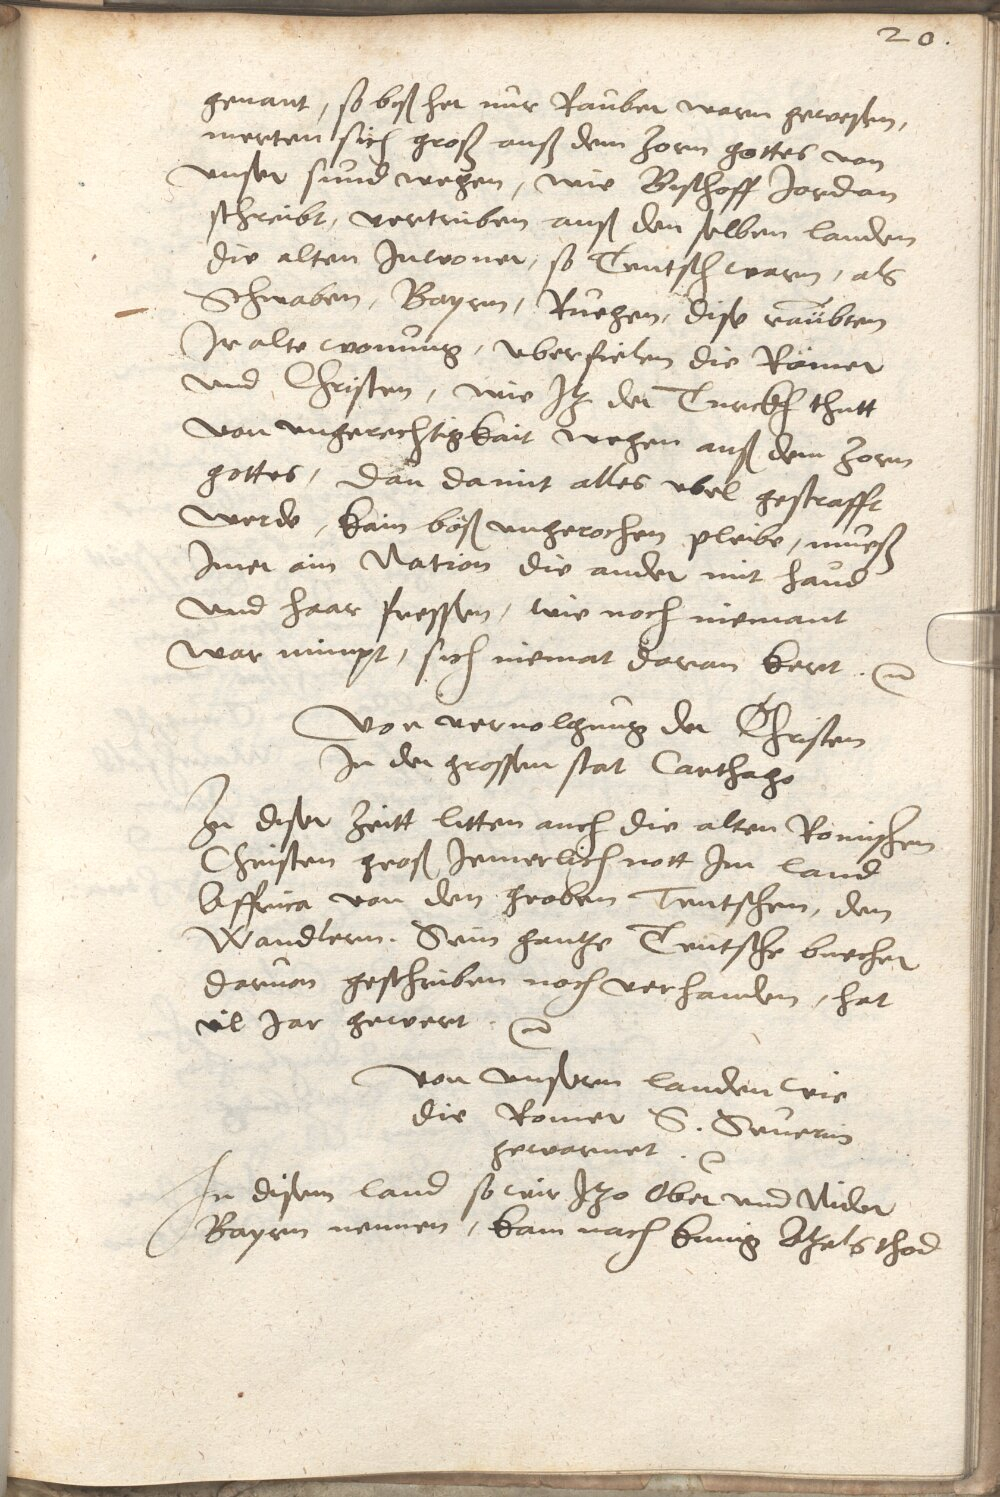 20.
genant, so bißher nur Rauber warn gewesen,
merten sich groß auß dem Zorn gottes von
unser sund wegen, wie Bischoff Jordan
schreibt, vertriben auß den selben landen
die alten Inwoner, so Teutsch warn, als
Schwaben, Bayrn, Ruegen, dise raubten
Ir alte wonung, uberfielen die Römer
und Christen, wie Itz der Turckh thutt
von ungerechtigkait wegen auß dem Zorn
gottes, dan damit alles ubel gestrafft
werde, kain böß ungerochen pleibe, mueß
Imer ain Nation die ander mit haud
und haar fressen, wie noch niemant
war nimpt, sich niemat daran kert.
Von vervolgung der Christen
In der grossen stat Carthago
In diser Zeitt litten auch die alten Romischen
Christen groß Jemerlich nott Im land
Affrica von den groben Teutschen, den
Wandlern. Sein gantze Teutsche buecher
darvon geschriben noch verhanden, hat
vil Jar gewert.
Von unserm landen wie
die Romer S. Severin
gewarnet.
In disem land so wir Itzo Ober und Nider
Bayrn nennen, kam nach kunig Atzels thod